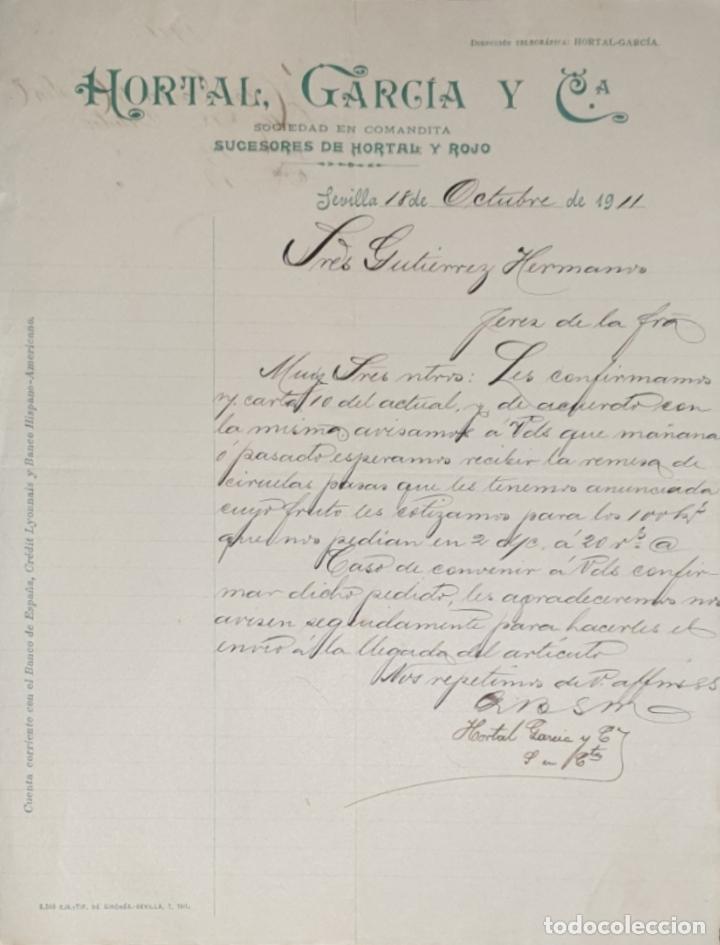 Dirección telegráfica: HORTAL-GARCÍA.
HORTAL, GARCÍA Y C.A
SOCIEDAD EN COMANDITA
SUCESORES DE HORTAL Y ROJO
Sevilla 18 de Octubre de 1911
Sres Gutiérrez Hermanos
Jerez de la fra
Muy Sres ntros: Les confirmamos
n/ carta 10 del actual, y de acuerdo con
la misma avisamos á Vds que mañana
ó pasado esperamos recibir la remesa de
ciruelas pasas que les tenemos anunciada
cuyo fruto les cotizamos para los 100 ks
que nos pedían en 2 d/c. á 20 rs @
Caso de convenir á Vds confir-
mar dicho pedido, les agradeceremos nos
avisen seguidamente para hacerles el
envío á la llegada del artículo
Nos repetimos de V. affmos SS
Q B S M
Hortal Garcia y Cª
S en Cta
Cuenta corriente con el Banco de España, Crédit Lyonnais y Banco Hispano-Americano.
TIP. DE GIRONÉS.-SEVILLA,
todocoleccion